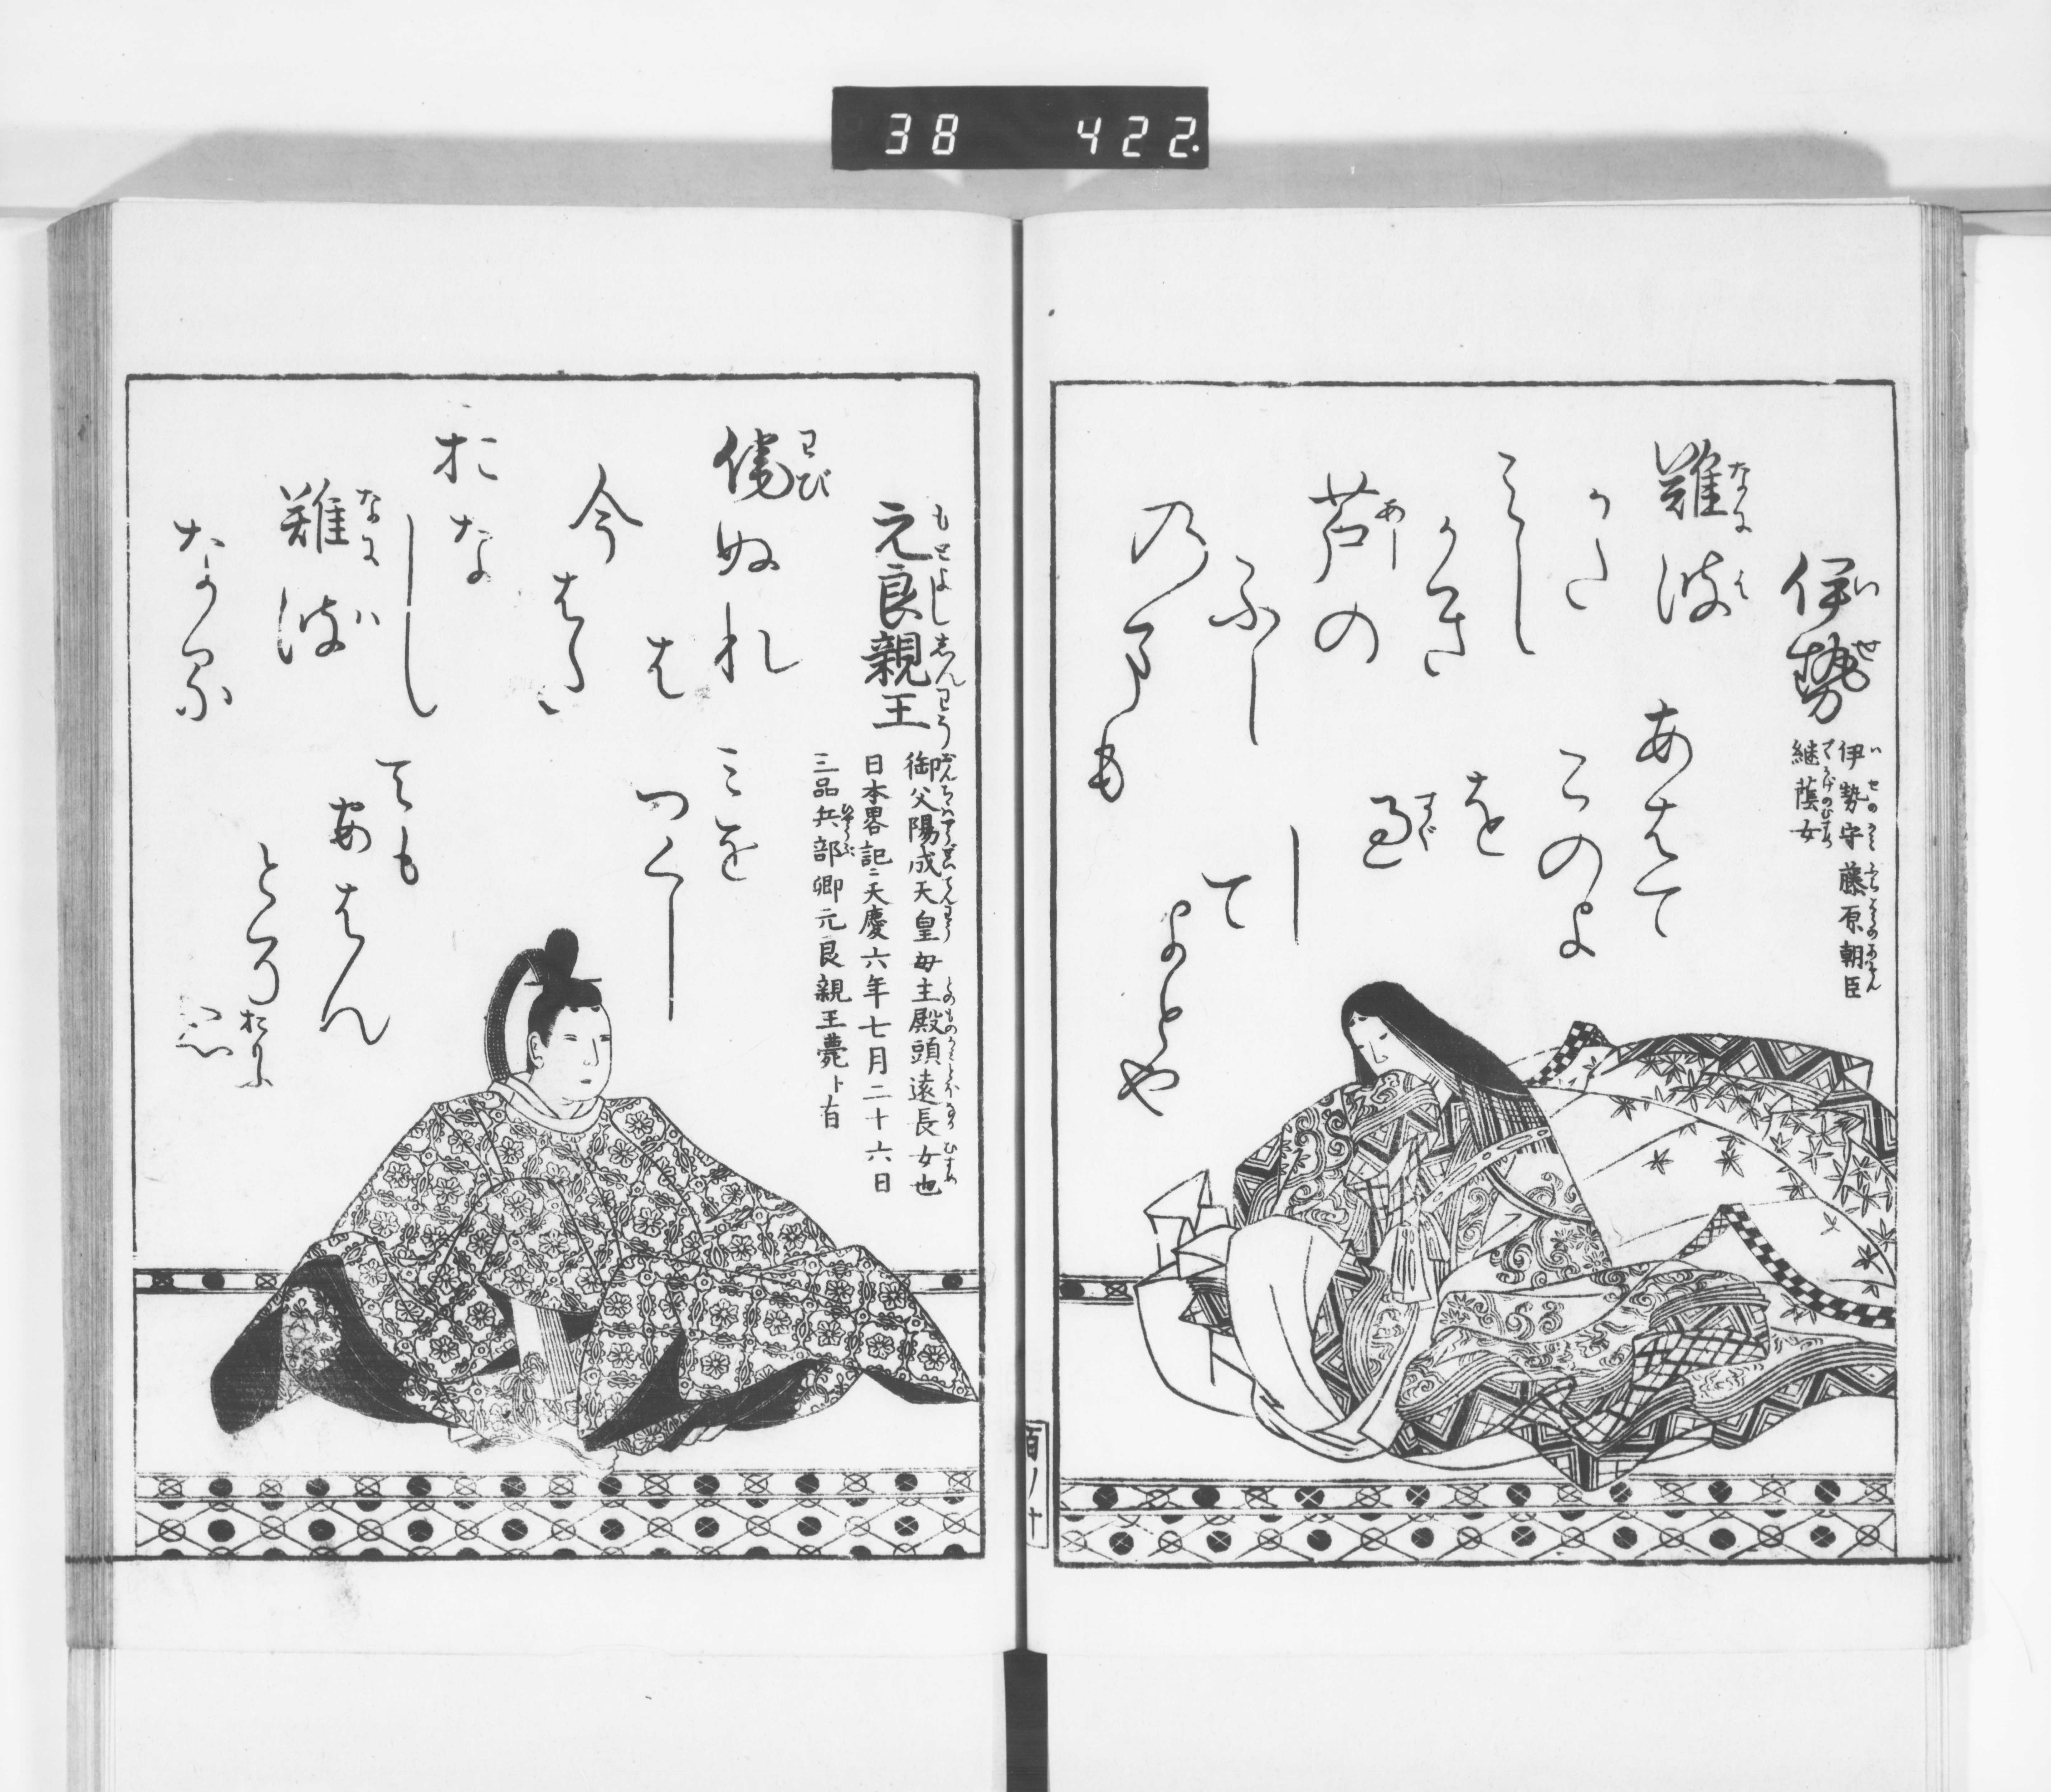 38 422
伊勢
伊勢守藤原朝臣
継蔭女
難波
かた
みし
かき
芦の
ふし
のまも
あはて
このよ
を
過
し
て
よとや
百ノ十
元良親王
御父陽成天皇母主殿頭遠長女也
日本畧記ニ天慶六年七月二十六日
三品兵部卿元良親王薨ト有
侘ぬれ
は
今はた
おな
し
難波
なる
みを
つくし
ても
あはん
とそ
おもふ